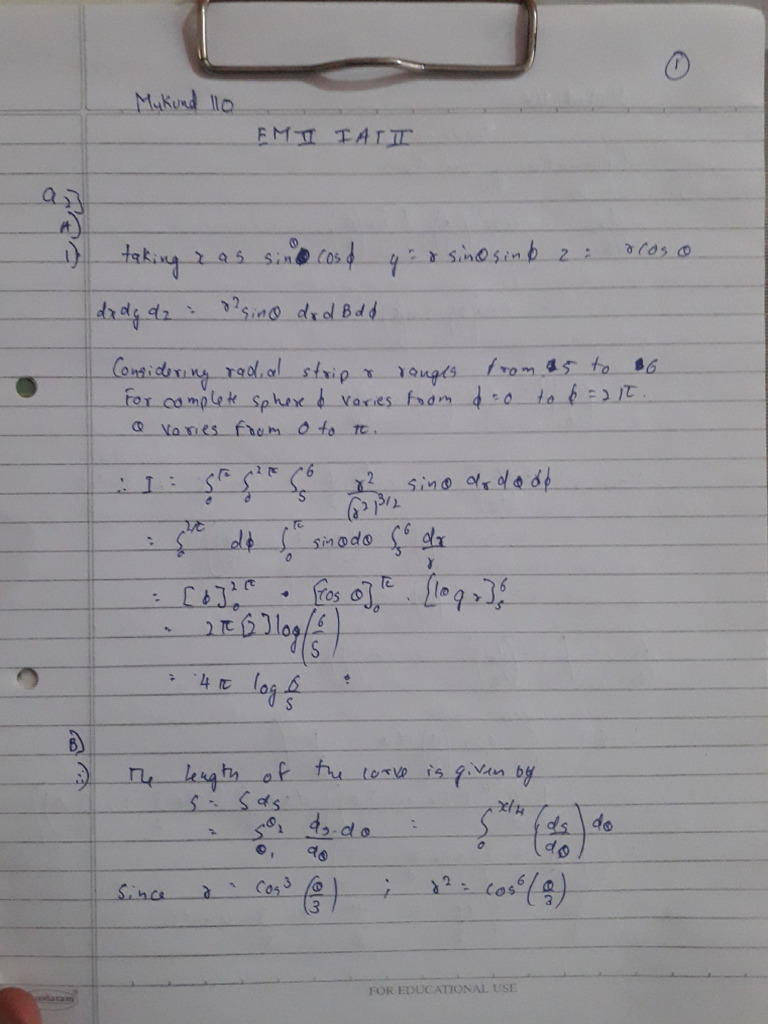 ①
Mukund 110
EM II IAT II
Q 2]
A]
1) taking x as sinθ cosφ y = r sinθ sinφ z = rcosθ
dxdydz = r²sinθ drdθdφ
Considering radial strip r ranges from 5 to 6
For complete sphere φ varies from φ=0 to φ=2π.
θ varies from 0 to π.
∴ I = ∫₀^π ∫₀^2π ∫₅^6 r²/(r²)^3/2 sinθ drdθdφ
= ∫₀^2π dφ ∫₀^π sinθdθ ∫₅^6 dr/r
= [φ]₀^2π · [cosθ]₀^π · [log r]₅^6
= 2π[2] log(6/5)
= 4π log 6/5
B]
i) The length of the curve is given by
s = ∫ds
= ∫θ₁^θ₂ ds/dθ · dθ = ∫₀^π/4 (ds/dθ) dθ
Since r = cos³(θ/3) ; r² = cos⁶(θ/3)
FOR EDUCATIONAL USE